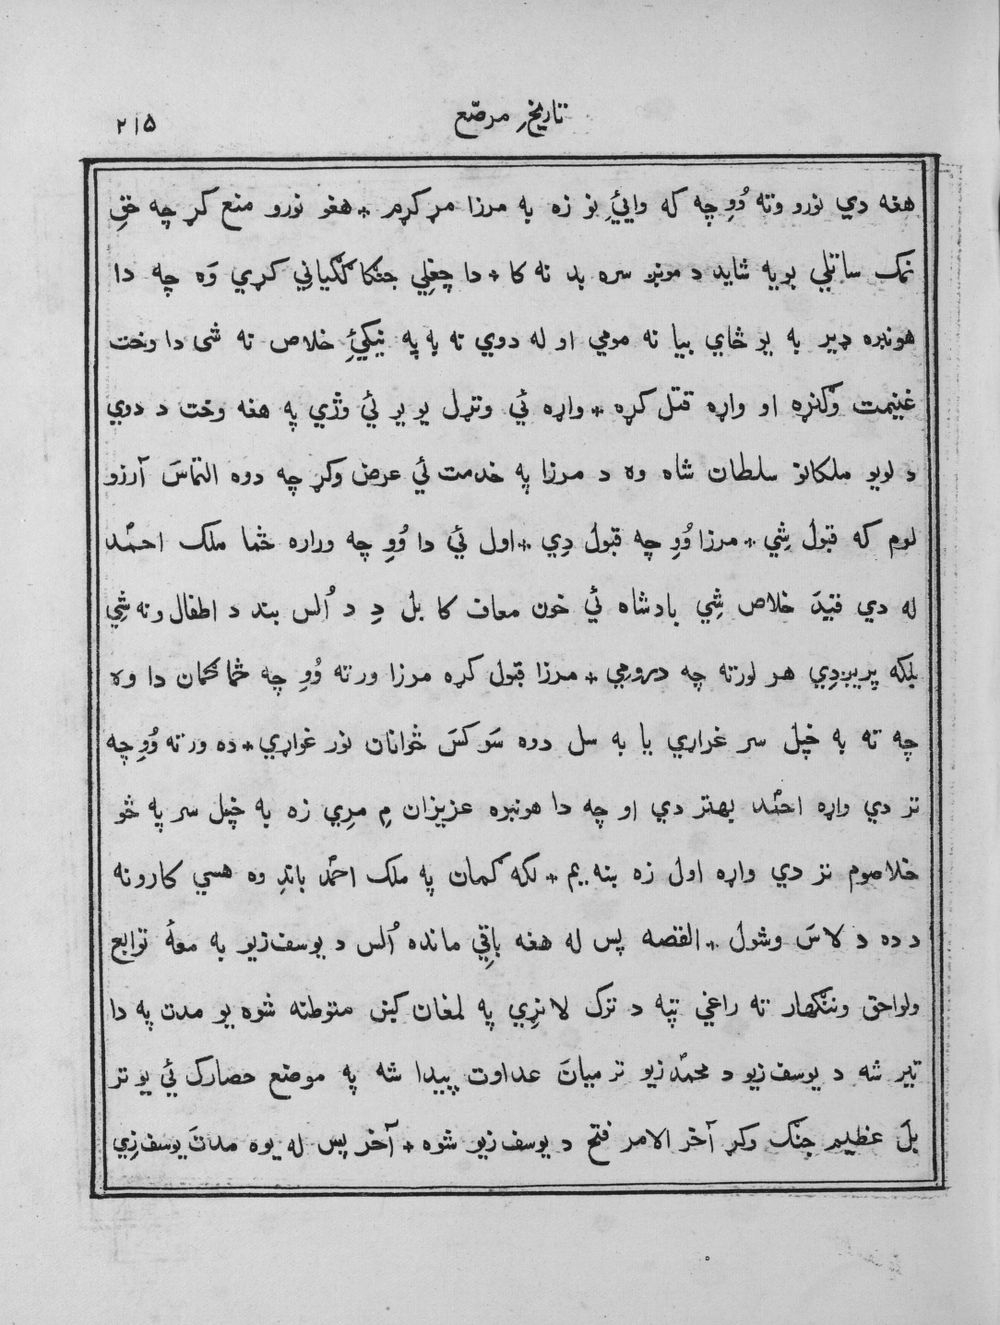 تاریخِ مرصّع
۲۱۵
هغه دي نورو وته وُوِ چه که وایئِ نو زه به مرزا مړ کړم * هغو نورو منع کړ چه حقِ
نمک ساتلي بویه شاید د مونږ سره بد نه کا * دا چغلِي جنکا ککیانِي کړي وَه چه دا
هونبره ډیر به یو ځاي بیا نه مومي او له دوي نه به په نیکئِ خلاص نه شی دا وخت
غنیمت وګنړه او واړه قتل کړه * واړه ئي وتړل یو یو ئي وژي په هغه وخت د دوي
د لویو ملکانو سلطان شاه وه د مرزا په خدمت ئي عرض وکړ چه دوه التماسَ آرزو
لرم که قبول شِي * مرزا وُوِ چه قبول دِي * اول ئي دا وُوِ چه وراره څما ملک احمّد
له دي قیدَ خلاص شِي بادشاه ئي خون معاف کا بل دِ د اُلس بند د اطفال ونه شِي
بلکه پریږدِي هر لورته چه درومي * مرزا قبول کړه مرزا ورته وُوِ چه څما ګمان دا وه
چه ته به خپل سر غواړي یا به سل دوه سَو کسَ ځوانان نور غواړي * ده ورته وُوِ چه
تر دي واړه احمّد بهتر دي او چه دا هونبره عزیزان مِ مرِي زه به خپل سر په څو
خلاصوم تر دي واړه اول زه بنه یم * لکه ګمان په ملک احمّد باندِ وه هسي کارونه
د ده د لاسَ وشول * القصه پس له هغه باقِي مانده اُلس د یوسف زیو به معۀ توابع
ولواحق وننګهار ته راغي تپه د ترک لانړِي په لمغان کښ متوطنه شوه یو مدت په دا
تیر شه د یوسف زیو د محمّد زیو تر میانَ عداوت پیدا شه په موضع حصارک ئي یو تر
بلَ عظیم جنګ وکړ آخر الامر فتح د یوسف زیو شوه * آخر پس له یوه مدتَ یوسف زِي